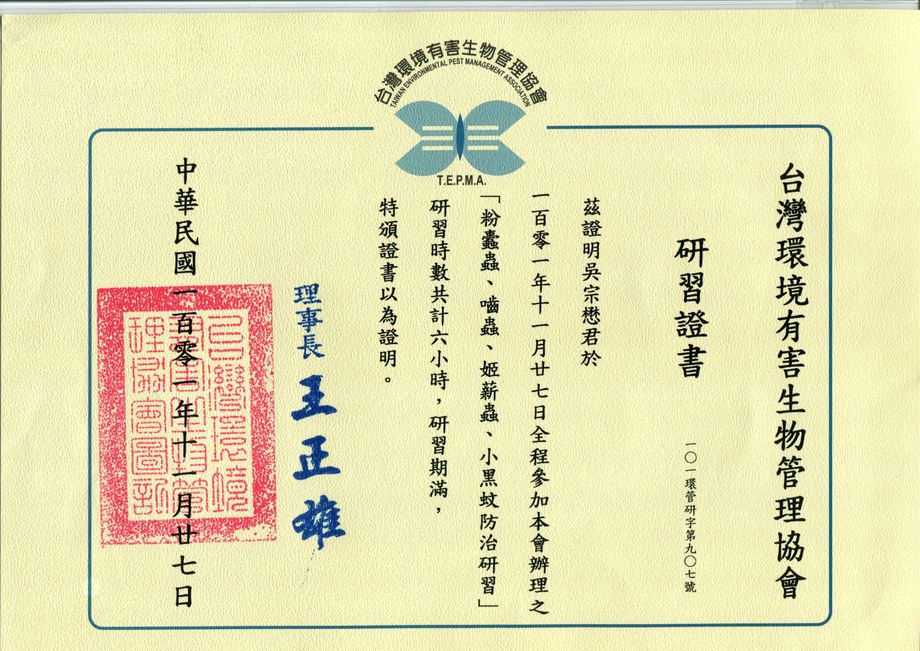 台灣環境有害生物管理協會
TAIWAN ENVIRONMENTAL PEST MANAGEMENT ASSOCIATION
T.E.P.M.A.
台灣環境有害生物管理協會
研習證書
一〇一環管研字第九〇七號
茲證明吳宗懋君於
一百零一年十一月廿七日全程參加本會辦理之
「粉蠹蟲、嚙蟲、姬薪蟲、小黑蚊防治研習」
研習時數共計六小時，研習期滿，
特頒證書以為證明。
理事長 王正雄
中華民國一百零一年十一月廿七日
台灣環境
有害生物管
理協會圖記